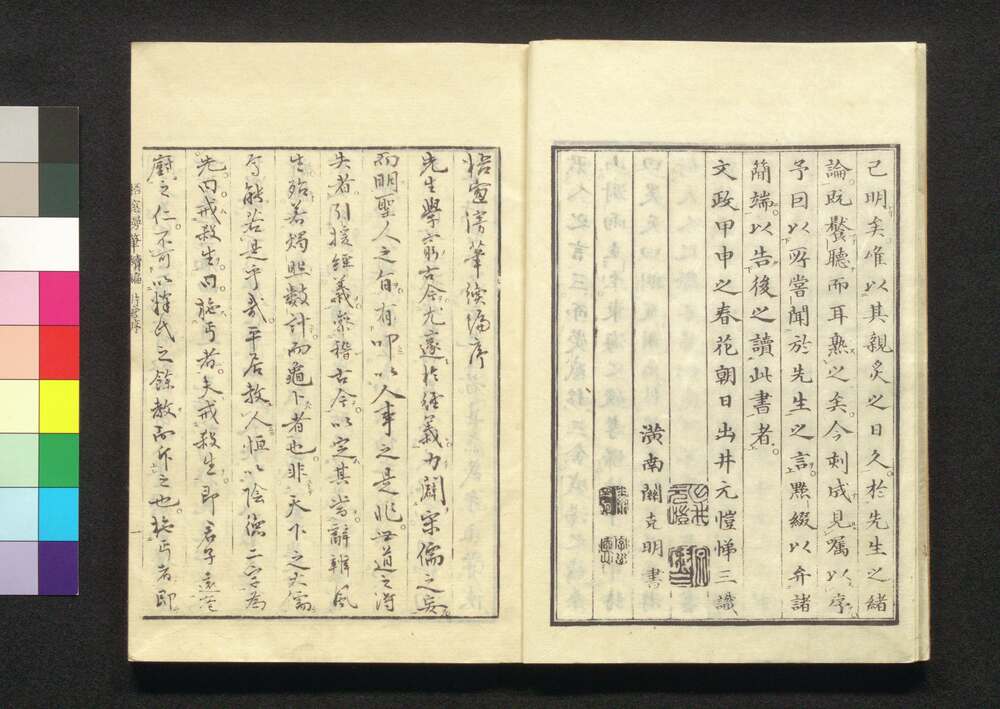 己明矣唯以其親炙之日久於先生之緒
論既饜聽而耳熟之矣今刻成見囑以序
予因以所嘗聞於先生之言點綴以弁諸
簡端以告後之讀此書者
文政甲申之春花朝日出井元愷悌三識
潢南關克明書
梧窓漫筆後編序
先生學窮古今尤邃於經義力闢宋儒之妄
而明聖人之旨有叩以人事之是非世道之得
失者引援經義參稽古今以定其当辭辨風
生殆若燭照數計而龜卜者也非天下之大儒
焉能若是乎哉平居教人恒以陰德二字為
先曰戒殺生曰施与者夫戒殺生即君子遠庖
廚之仁不可以釋氏之餘教而斥之也施与者即